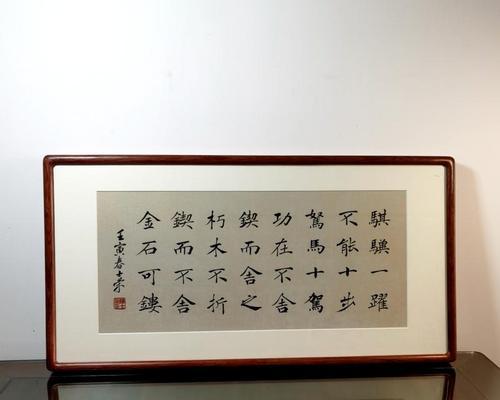 騏驥一躍
不能十步
駑馬十駕
功在不舍
鍥而舍之
朽木不折
鍥而不舍
金石可鏤
壬寅春